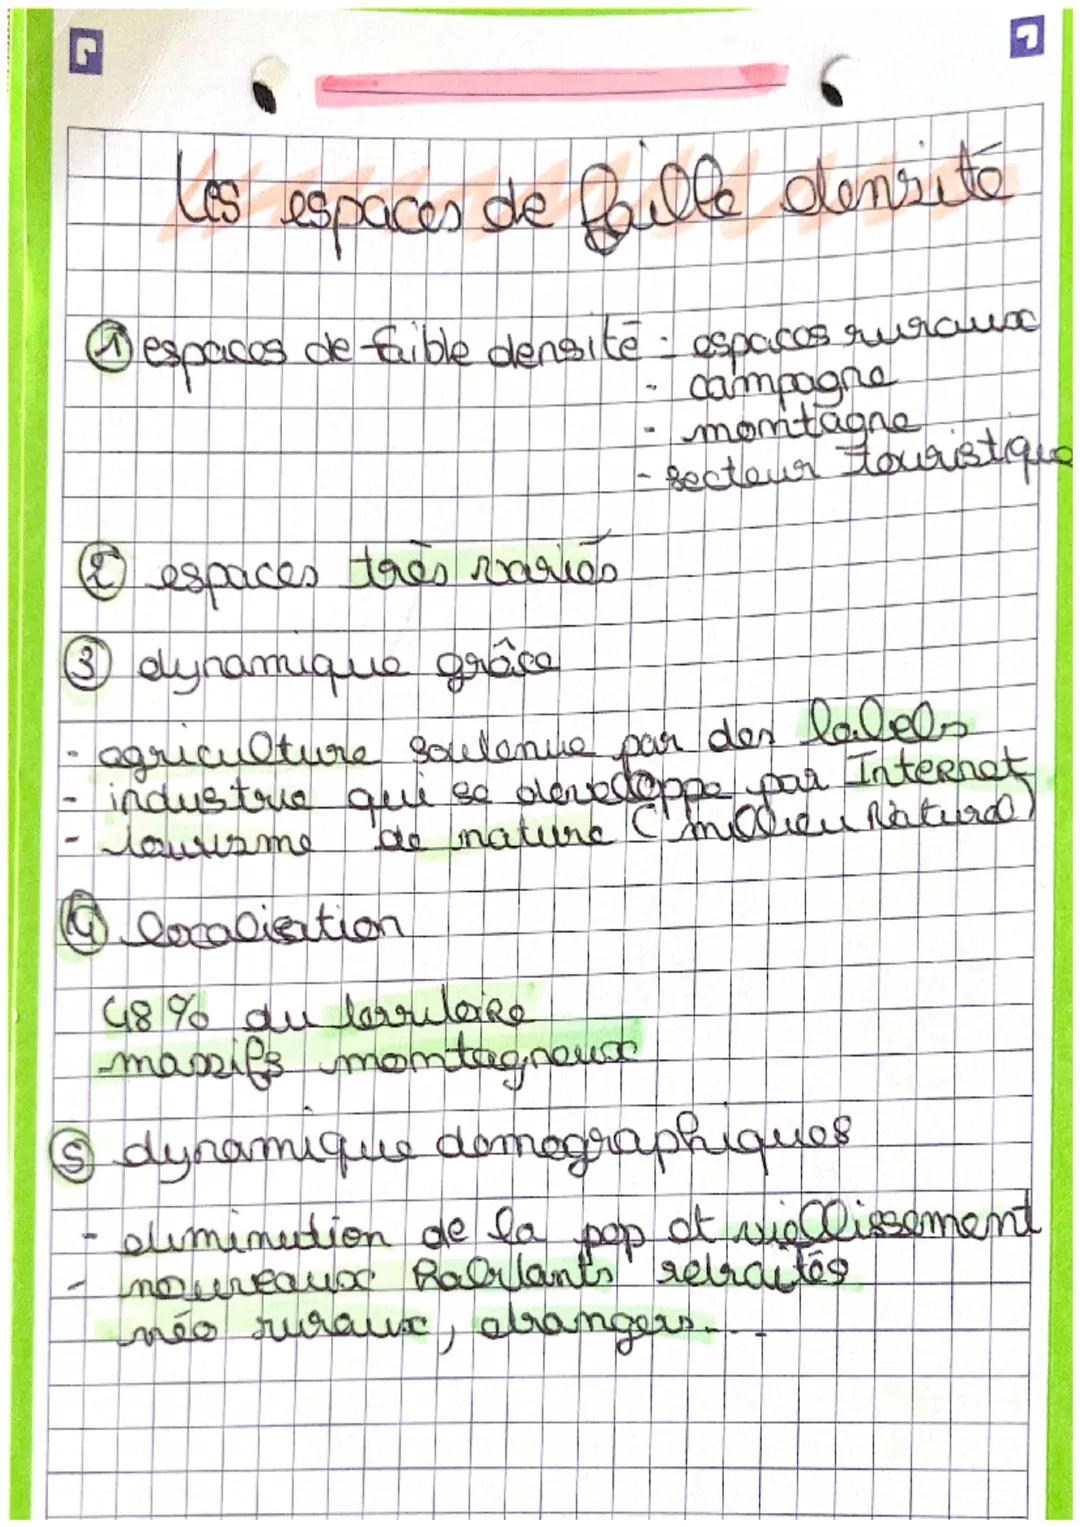 Les espaces de faible densité
① espaces de faible densité - espaces ruraux
- campagne
- montagne
- secteur touristique
② espaces très variés
③ dynamique grâce
- agriculture soutenue par des labels
- industrie qui se developpe par Internet
- tourisme de nature (milieu Naturel)
④ localisation
48% du territoire
massifs montagneux
⑤ dynamique demographiques
- diminution de la pop et vieillissement
- nouveaux habitants retraités
néo ruraux, etrangers...